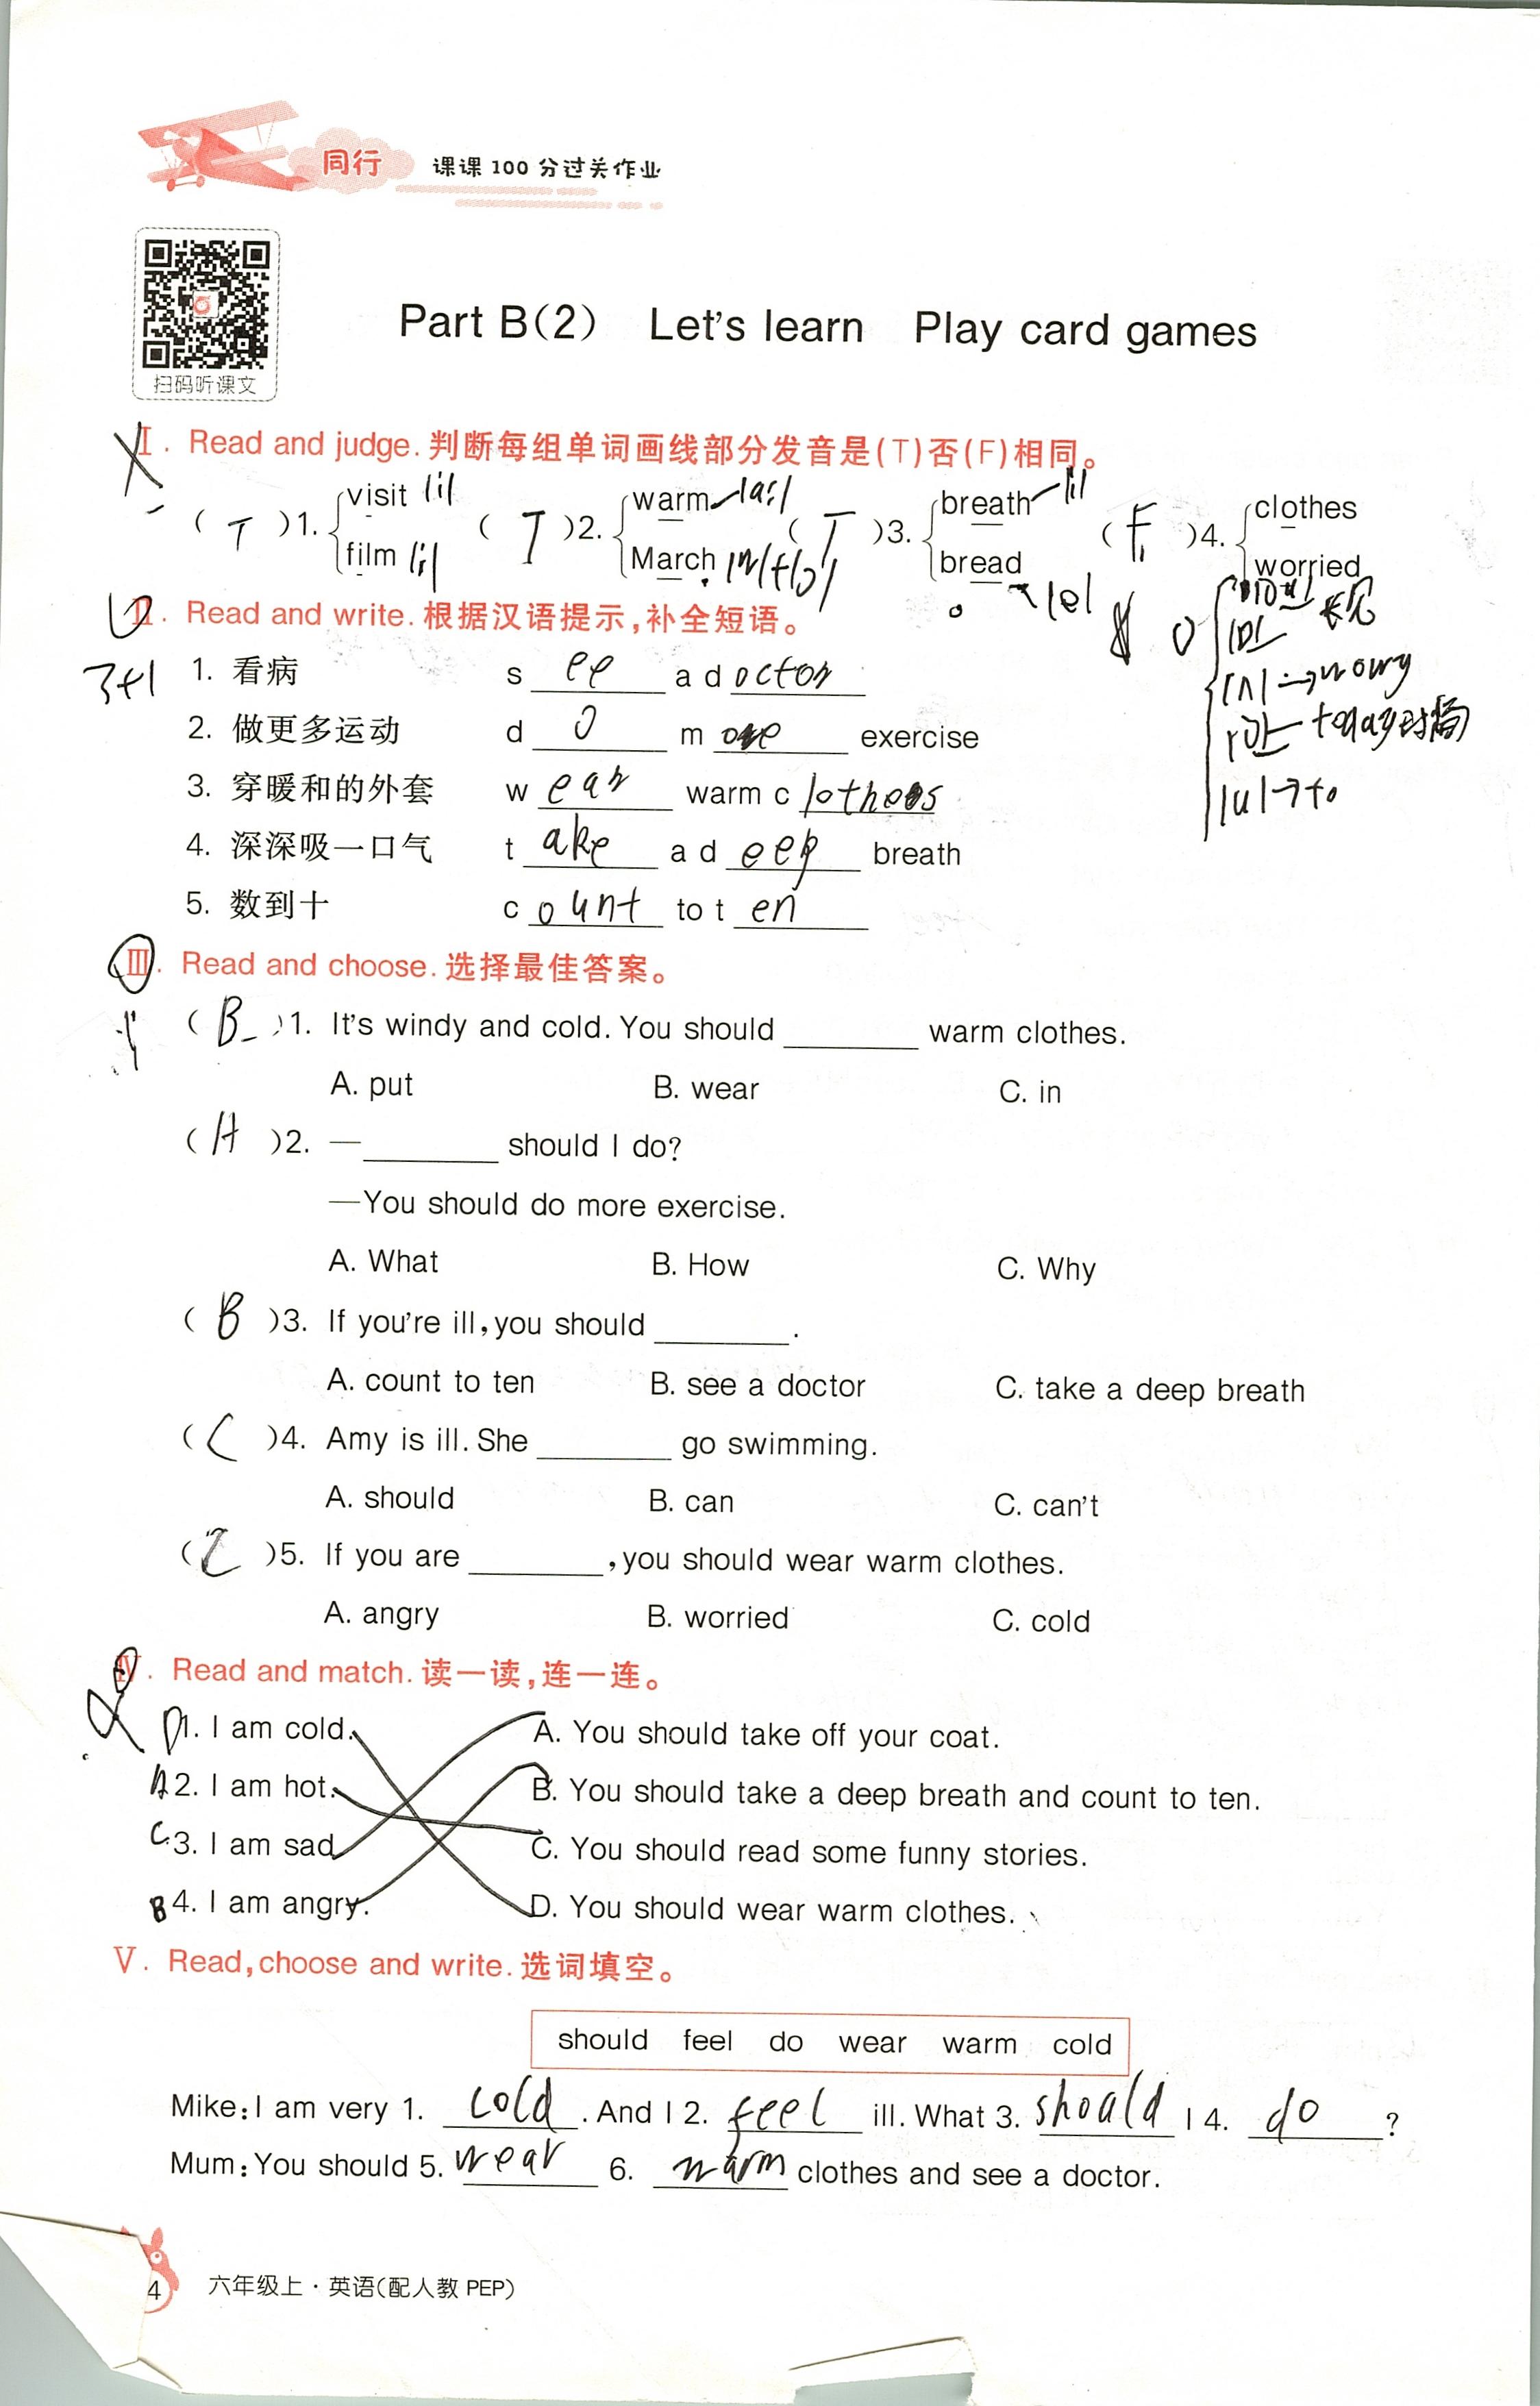 同行 课课100分过关作业
扫码听课文
Part B(2) Let's learn Play card games
Ⅰ. Read and judge. 判断每组单词画线部分发音是(T)否(F)相同。
( T )1. visit film ( T )2. warm March ( T )3. breath bread ( F )4. clothes worried
Ⅱ. Read and write. 根据汉语提示,补全短语。
3+1
1. 看病 s ee a d octor
2. 做更多运动 d o m ore exercise
3. 穿暖和的外套 w ear warm c lothes
4. 深深吸一口气 t ake a d eep breath
5. 数到十 c ount to t en
Ⅲ. Read and choose. 选择最佳答案。
( B )1. It's windy and cold. You should ______ warm clothes.
A. put B. wear C. in
( A )2. —______ should I do?
—You should do more exercise.
A. What B. How C. Why
( B )3. If you're ill, you should ______.
A. count to ten B. see a doctor C. take a deep breath
( C )4. Amy is ill. She ______ go swimming.
A. should B. can C. can't
( C )5. If you are ______, you should wear warm clothes.
A. angry B. worried C. cold
Ⅳ. Read and match. 读一读,连一连。
D 1. I am cold. A. You should take off your coat.
A 2. I am hot. B. You should take a deep breath and count to ten.
C 3. I am sad. C. You should read some funny stories.
B 4. I am angry. D. You should wear warm clothes.
Ⅴ. Read, choose and write. 选词填空。
should feel do wear warm cold
Mike: I am very 1. cold . And I 2. feel ill. What 3. shoald I 4. do ?
Mum: You should 5. wear 6. warm clothes and see a doctor.
4 六年级上·英语(配人教 PEP)